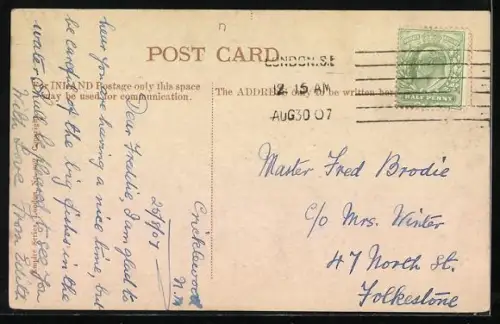 POST CARD
For INLAND Postage only this space
may be used for communication.
The ADDRESS only to be written here.
LONDON.S.E
12 15 AM
AUG 30 07
HALFPENNY
Cricklewood
N.W
29/8/07
Dear Freddie, I am glad to
hear you are having a nice time, but
be careful of the big fishes in the
water. Shall be pleased to see you
With Love from Edith
Master Fred Brodie
c/o Mrs. Winter
47 North St.
Folkestone